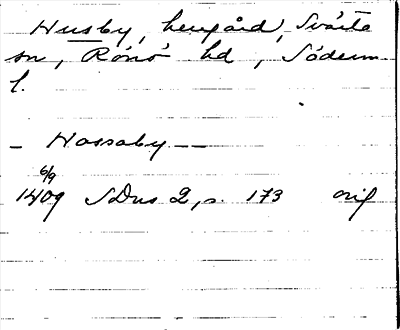 Husby, herrgård, Svärta
sn, Rönö hd, Söderm.
l.
- Hossaby --
6/9
1409 SDns 2, s. 173 orig